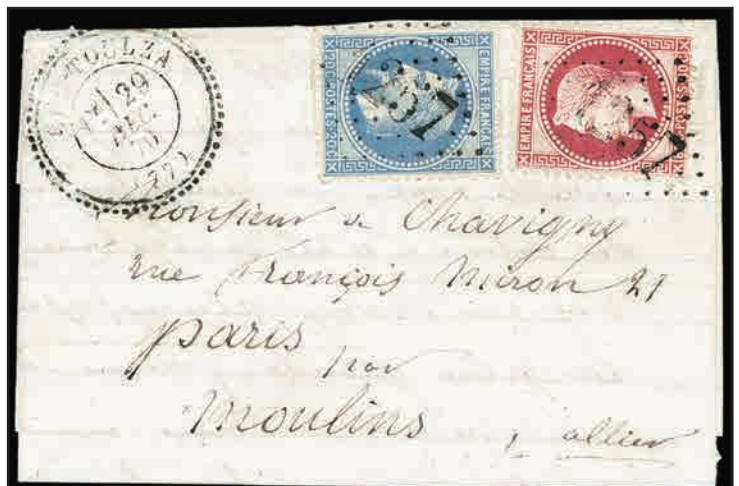 TOULZA
29
DEC.
70
(77)
EMPIRE FRANÇAIS
20 C POSTES 20 C
EMPIRE FRANÇAIS
POSTES
Monsieur de Chavigny
rue François Miron 21
paris
par
moulins , allier